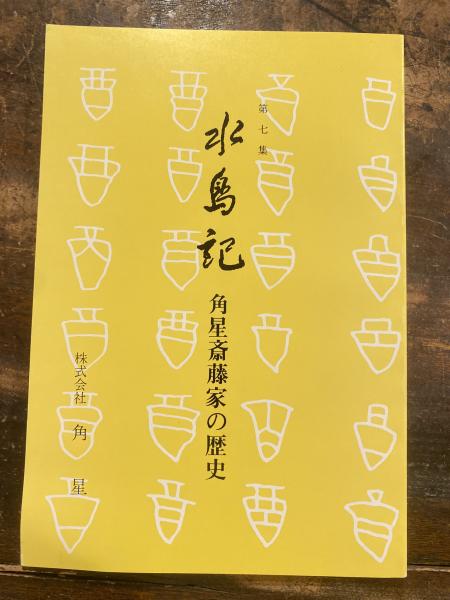 第七集
水鳥記
角星斎藤家の歴史
株式会社 角星